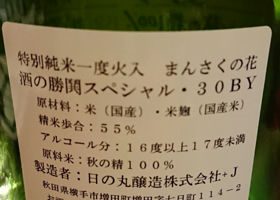 特別純米一度火入 まんさくの花
酒の勝関スペシャル・30BY
原材料:米(国産)・米麹(国産米)
精米歩合:55%
アルコール分:16度以上17度未満
原料米:秋の精100%
製造者:日の丸醸造株式会社+J
秋田県横手市増田町増田字七日町114-2